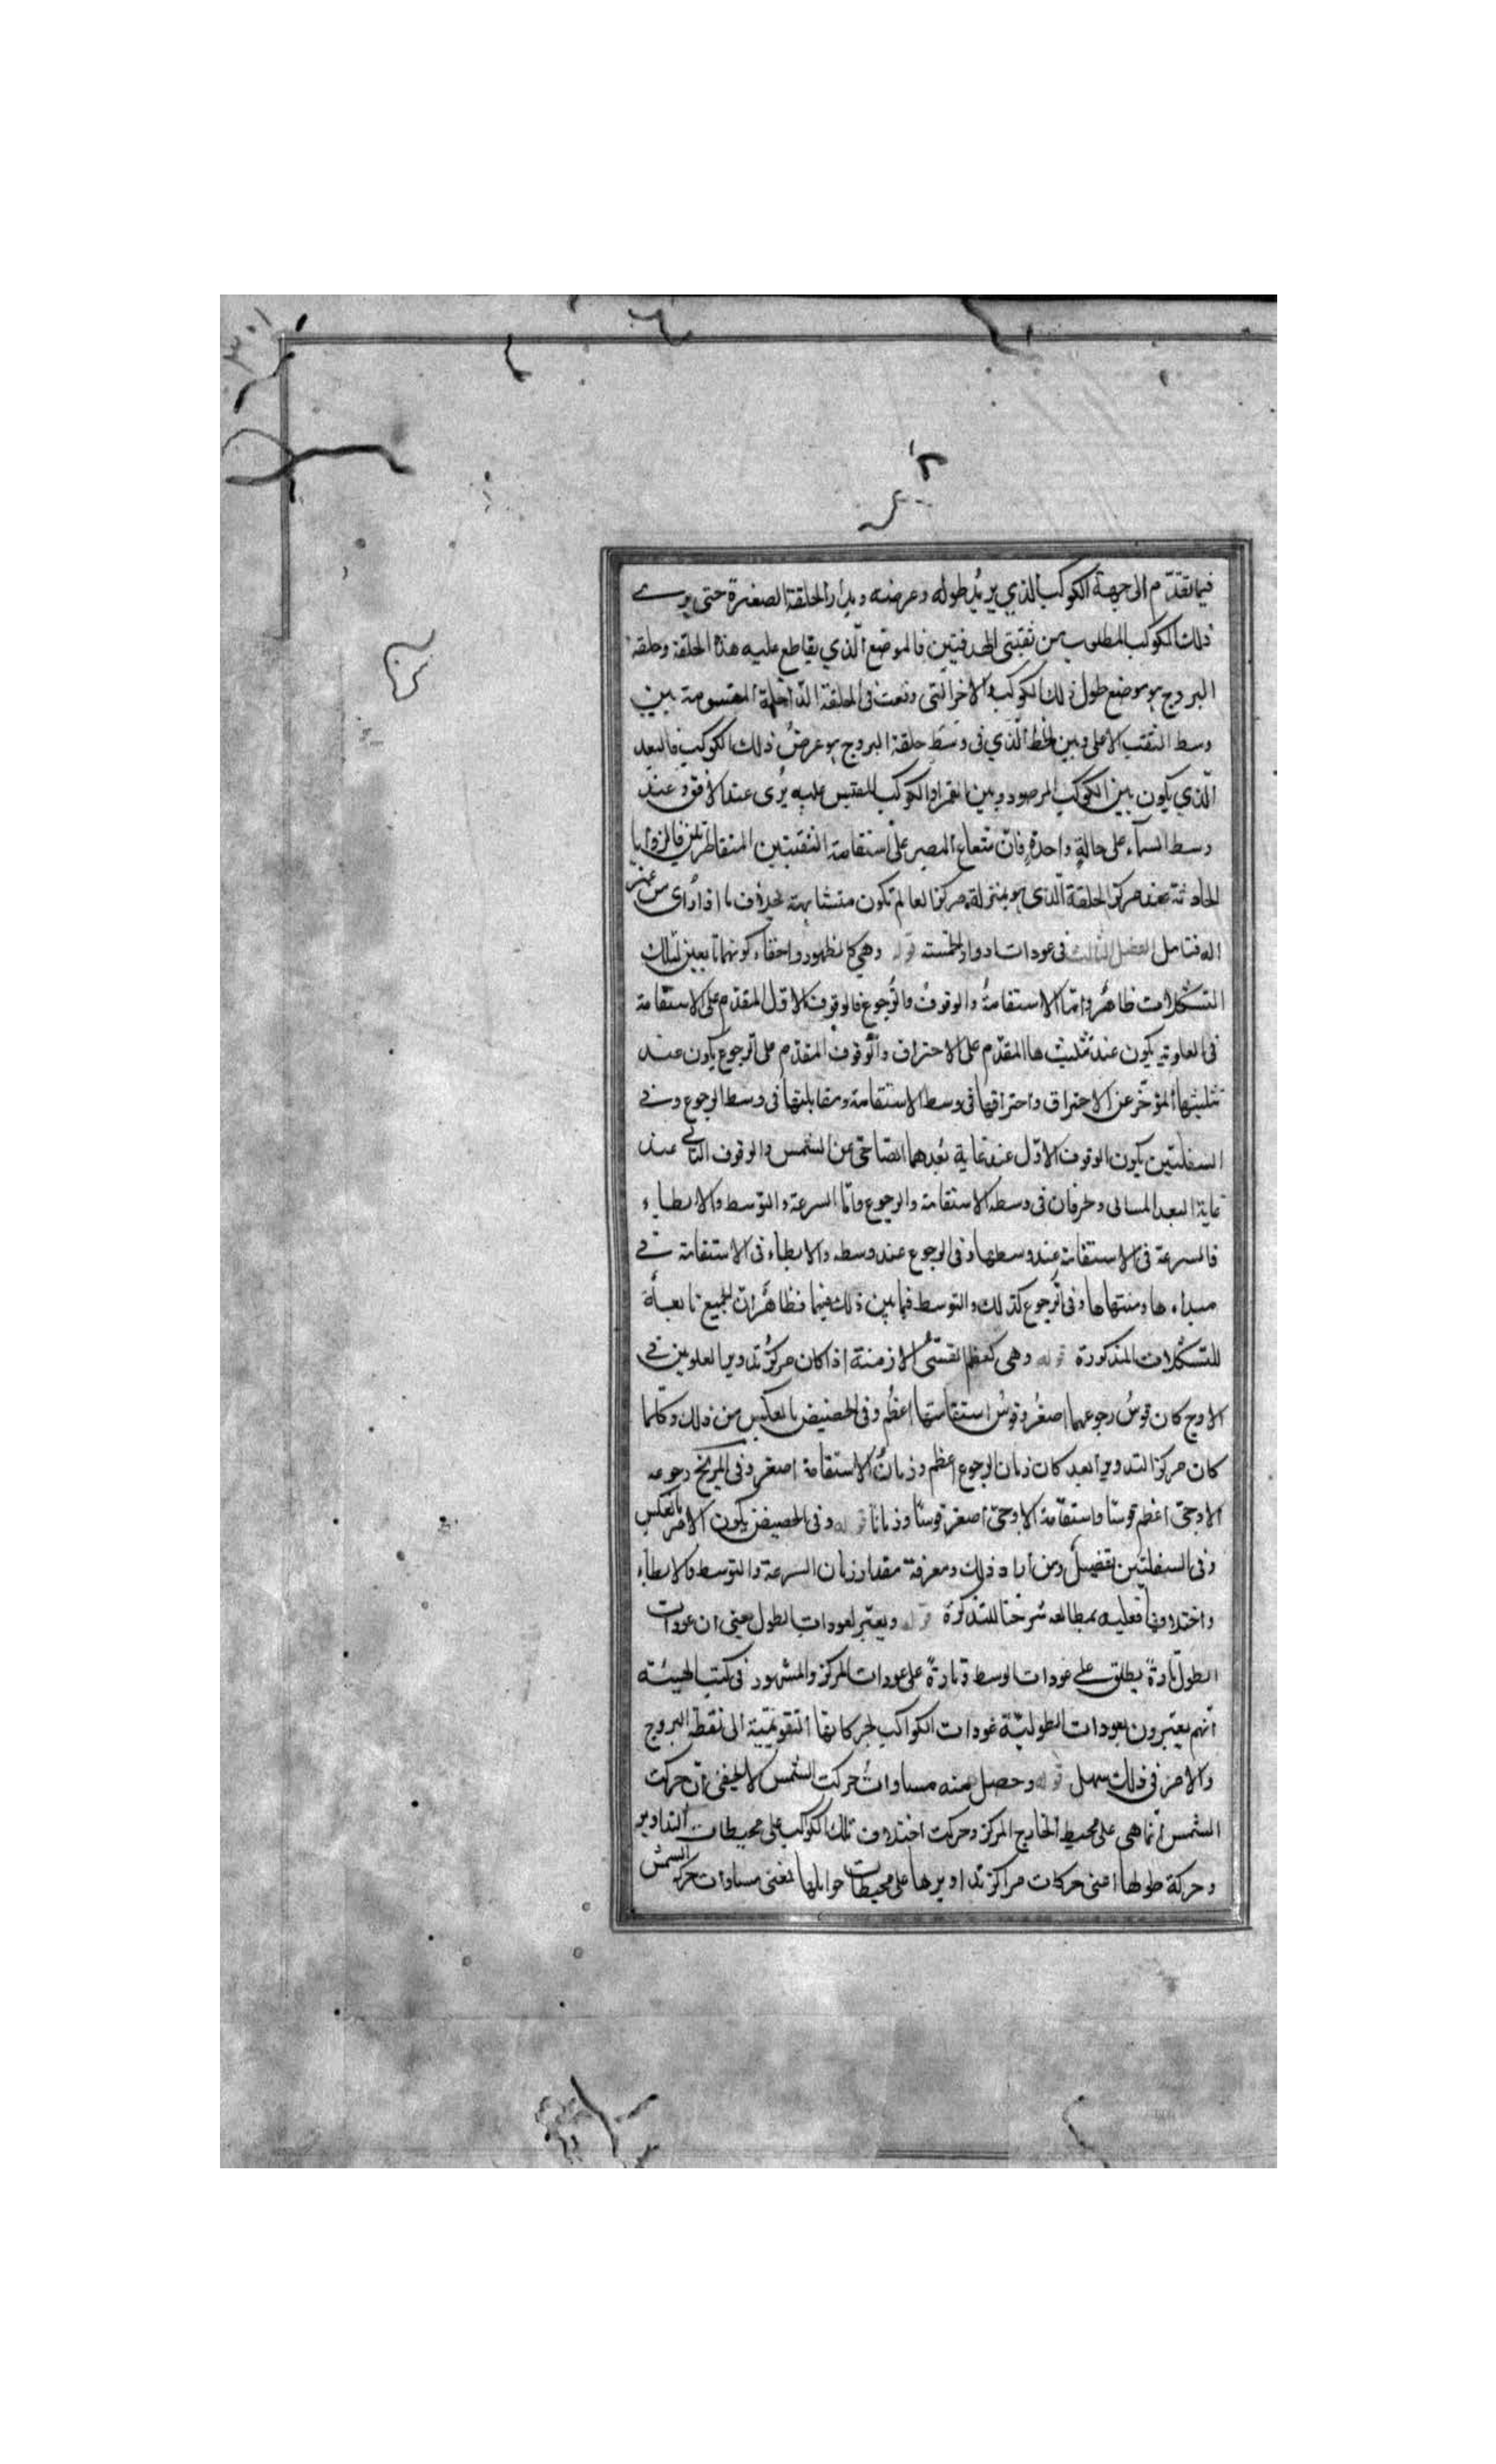 فيما تقدّم الى جهة الكوكب الذي يريد طوله وعرضه ويدار الحلقة الصغيرة حتى يرى
ذلك الكوكب المطلوب من ثقبتى الهدفتين فالموضع الّذي يقاطع عليه هذا الحلقة وحلقة
البروج هو موضع طول ذلك الكوكب والاخر التى وقعت فى الحلقة الداخلة المقسومة بين
وسط الثقب الاعلى وبين الخط الّذي فى وسَط حلقة البروج هو عرضُ ذلك الكوكب فالبعد
الّذي يكون بين الكوكب المرصود وبين القمر او الكوكب المقيس عليه يُرى عند الافق وعند
وسط السمآء على حالةٍ واحدةٍ فانّ شعاع البصر على استقامة الثقبتين المتقاطرتين فالزوايا
الحادثة عند مركز الحلقة الّذى هو بمنزلة مركز العالم تكون متشابهة بخلاف ما اذا رأى من غير
اله فتامل الفصل الثالث فى عودات ادوار الخمسة قوله وهي كالظهور واخفاء كونهما تابعين لتلك
التشكلات ظاهرٌ وامّا الاستقامةُ والوقوفُ والرُّجوع فالوقوف الاول المقدّم على الاستقامة
فى العلوية يكون عند تثليثها المقدّم على الاحتراق والوقوف المقدّم على الرجوع يكون عند
تثليثها المؤخّر عن الاحتراق واحتراقها فى وسط الاستقامة ومقابلتها فى وسط الرجوع وفى
السفليتين يكون الوقوف الاوّل عند غاية بُعدهما الصباحى عن الشمس والوقوف الثانى عند
غاية البعد المسائى ويحرقان فى وسط الاستقامة والرجوع وامّا السرعة والتوسط والابطاء
فالسرعة فى الاستقامة عند وسطها وفى الرجوع عند وسطه والابطاء فى الاستقامة فى
مبداءها ومنتهاها وفى الرجوع كذلك والتوسط فيما بين ذلك فيهما فظاهرٌ ان الجميع تابعة
للتشكلات المذكورة قوله وهى كعظم القسىّ الازمنة اذا كان مركزُ تدوير العلويين فى
الاوج كان قوسُ رجوعهما اصغرُ وقوسُ استقامتها اعظُم وفى الحضيض بالعكس من ذلك وكلّما
كان مركز التدوير ابعد كان زمان الرجوع اعظم وزمانُ الاستقامة اصغر وفى المريخ رجوعه
الاوجىّ اعظم قوسًا واستقامة الاوجىّ اصغر قوسًا وزمانًا قوله وفى الحضيض يكون الامر بالعكس
وفى السفليتين تفصيلٌ ومن اراد ذلك ومعرفة مقدار زمان السرعة والتوسط والابطاء
واختلافها فعليه بمطالعه شرحنا للتذكرة قوله ويعتبر لعودات الطول يعني ان عودات
الطول تارةً يطلق على عودات الوسط وتارةً على عودات المركز والمشهور فى كتب الهيئة
انّهم يعتبرون بعودات الطوليّة عودات الكواكب لحركاتها التقويميّة الى نقطة البروج
والامر فى ذلك سهل قوله وحصل منه مساواتُ حركت الشمس لا يخفى انّ حركت
الشمس انّما هى على محيط الخارج المركز وحركت اختلاف تلك الكواكب على محيطات التداوير
وحركة طولها اعنى حركات مراكز تداويرها على محيطات حواملها فمعنى مساوات حركة الشمس